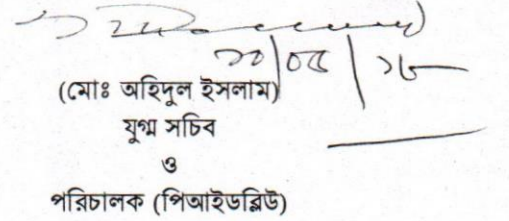 ২০/০৫/১৮
(মোঃ অহিদুল ইসলাম)
যুগ্ম সচিব
ও
পরিচালক (পিআইডব্লিউ)